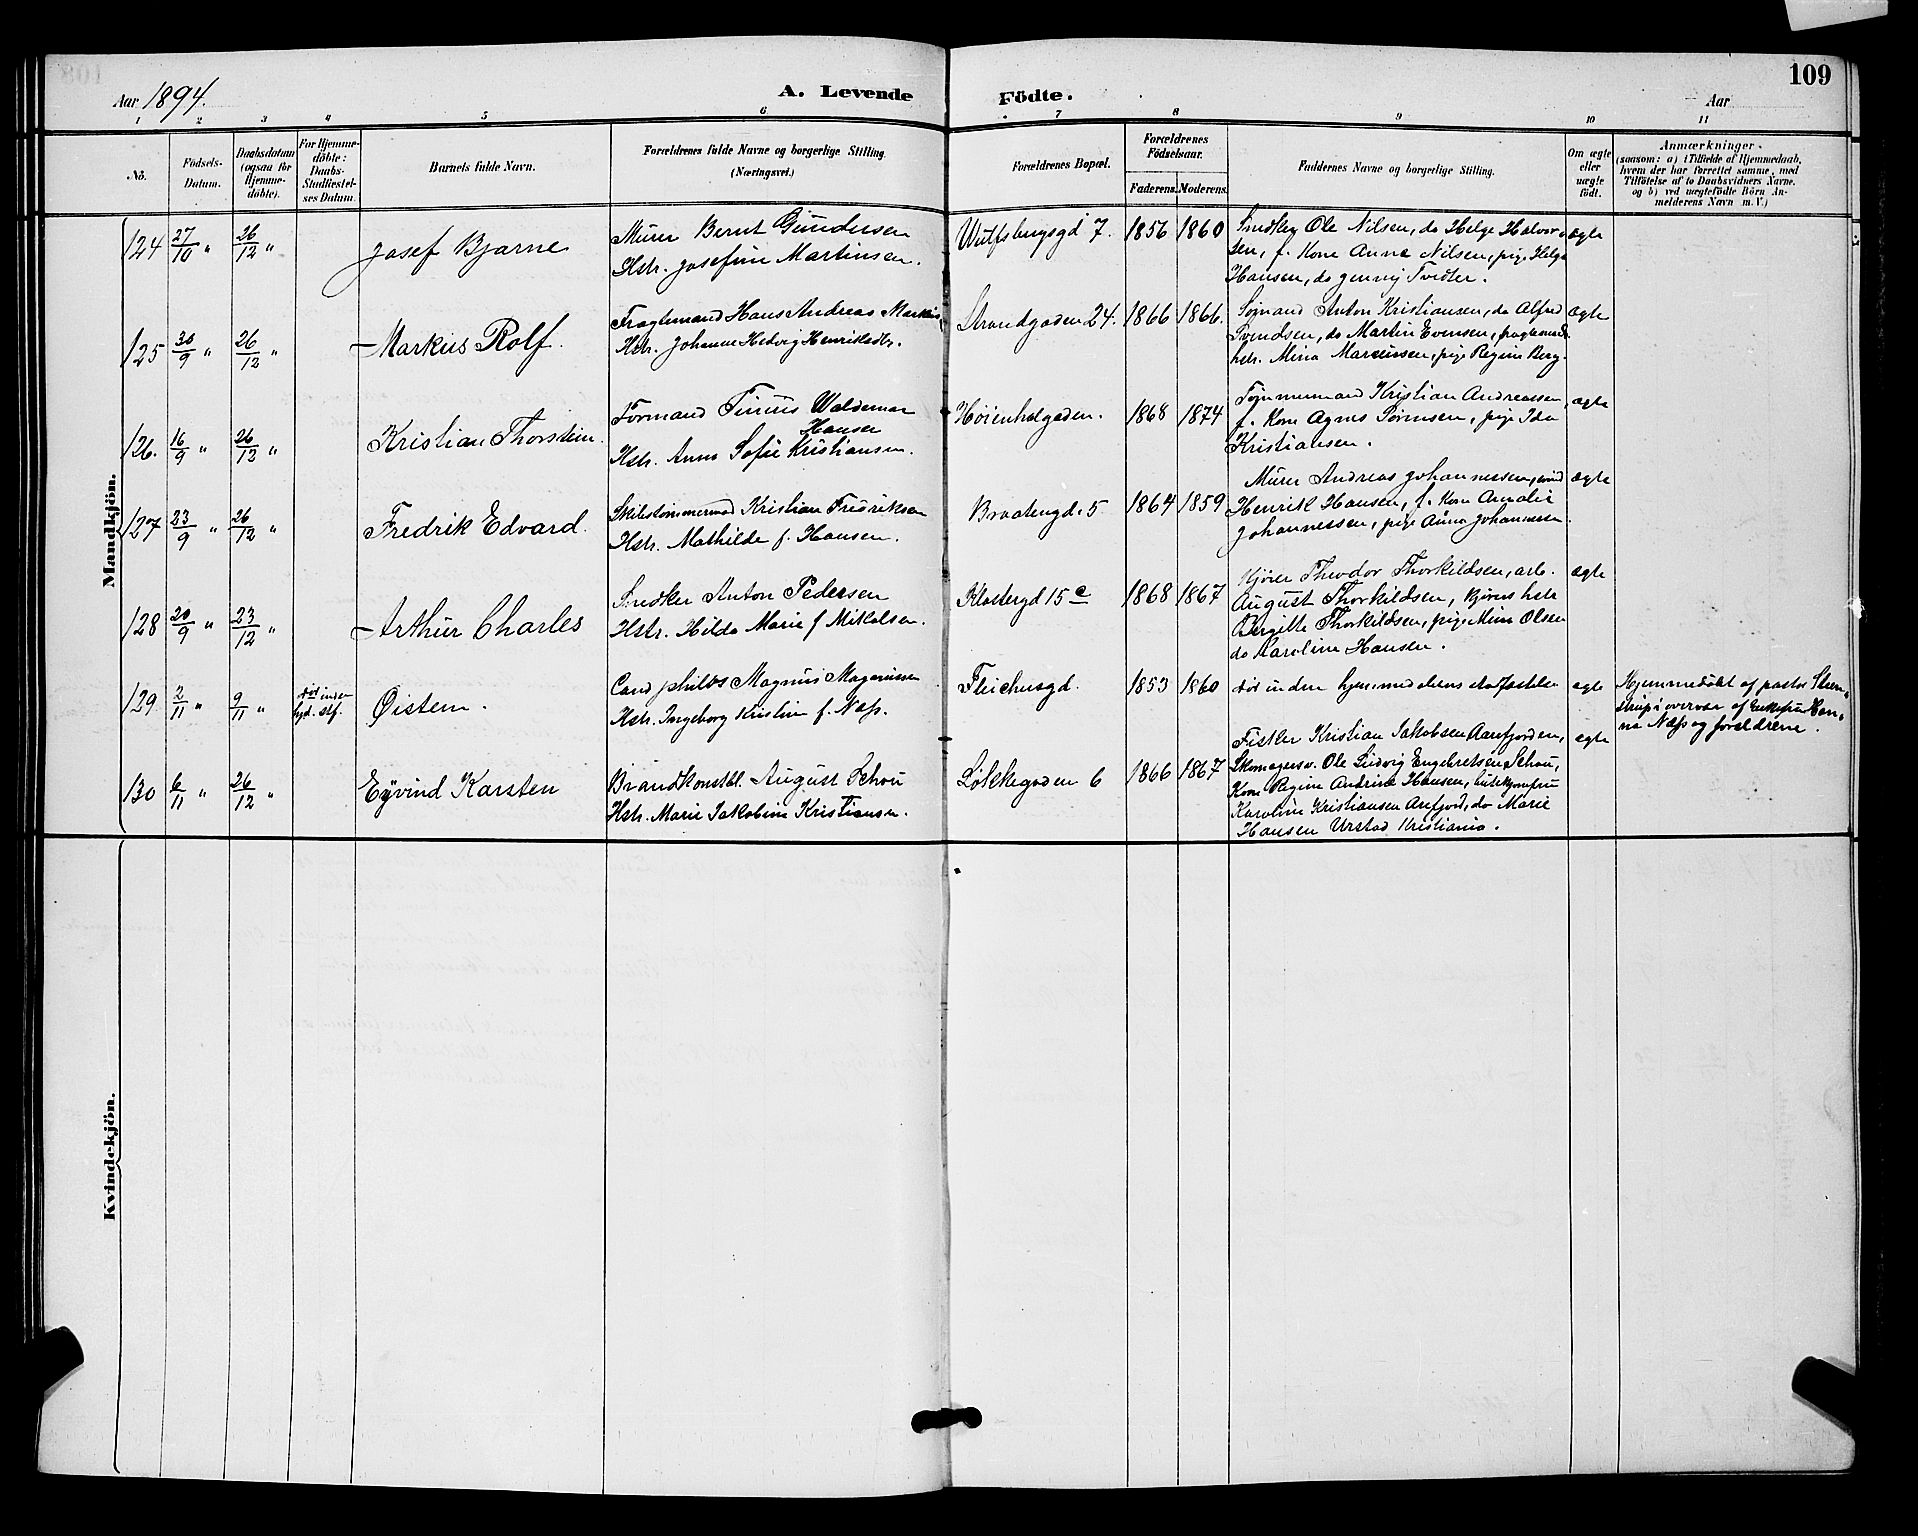 109
Aar 1894.
A. Levende Födte.
Aar
1 2 3 4 5 6 7 8 9 10 11
No.
Födsels-Datum.
Daabsdatum (ogsaa for Hjemme-döbte).
For Hjemme-döbte: Daabs-Stadfæstel-ses Datum.
Barnets fulde Navn.
Forældrenes fulde Navne og borgerlige Stilling. (Næringsvei.)
Forældrenes Bopæl.
Forældrenes Födselsaar.
Faderens. Moderens.
Faddernes Navne og borgerlige Stilling.
Om ægte eller uægte födt.
Anmærkninger.
(saasom: a) i Tilfælde af Hjemmedaab,
hvem der har forrettet samme, med
Tilföielse af to Daabsvidners Navne.
og b) ved uægtefödte Börn An-
melderens Navn m. V.)
Mandkjön.
124 27/10 " 26/12 " Josef Bjarne
Murer Bernt Gundersen
Hstr. Josefine Martinsen.
Wulfsbergsgd 7. 1856 1860
Snedker Ole Nilsen, do Helge Halvor-
sen, f. Kone Anne Nilsen, pige Helga
Hansen, do Jenny Tvidter.
ægte
125 30/9 " 26/12 " Markus Rolf.
Fragtemand Hans Andreas Markus
Hstr. Johanne Hedvig Henriksdtr.
Strandgaden 24. 1866 1866.
Sømand Anton Kristiansen, do Alfred
Svendsen, do Martin Evensen, fragtemands
hstr. Mina Marcussen, pige Regine Berg.
ægte
126. 16/9 " 26/12 " Kristian Thorstein.
Formand Timus Waldemar
Hansen
Hstr. Anna Sofie Kristiansen.
Høienhalgaden. 1868 1874
Tømmermand Kristian Andreassen,
f. Kone Agnes Sørensen, pige Ida
Kristiansen.
ægte
127 23/9 " 26/12 " Fredrik Edvard.
Skibstømmermand Kristian Fredriksen
Hstr. Mathilde f. Hansen.
Braatengd. 5 1864 1859
Murer Andreas Johannessen,
Henrik Hansen, f. Kone Amalie
Johannessen, pige Anna Johannesen.
ægte
128 20/9 " 23/12 " Arthur Charles
Snedker Anton Pedersen
Hstr. Hilda Marie f Mikalsen.
Klostergd 15 c 1868 1867
Kjører Theodor Thorkildsen, arb.
August Thorkildsen, kjørers hstr
Bergitte Thorkildsen, pige Mina Olsen
do Karoline Hansen.
ægte
129 2/11 " 9/11 " død inden hjd. stf. Øistein.
Cand philos Magnus Magnussen
Hstr. Ingeborg Kristine f. Næss.
Fleichusgd. 1853 1860
død inden hjemmedaabens stadfæstelse
ægte
Hjemmedøbt af pastor Steen-
strup i overvær af Enkefru Han-
na Næss og forældrene.
130 6/11 " 26/12 " Eyvind Karsten
Brandkonstbl. August Schou
Hstr. Marie Jakobine Kristiansen.
Løkkegaden 6 1866 1867
Fisker Kristian Jakobsen Aarefjorden,
Skomagersv. Ole Ludvig Engebretsen Schou,
Kone Regine Andrine Hansen, butikjomfru
Karoline Kristiansen Arefjord, do Marie
Hansen Urstad Kristiania.
ægte
Kvindekjön.